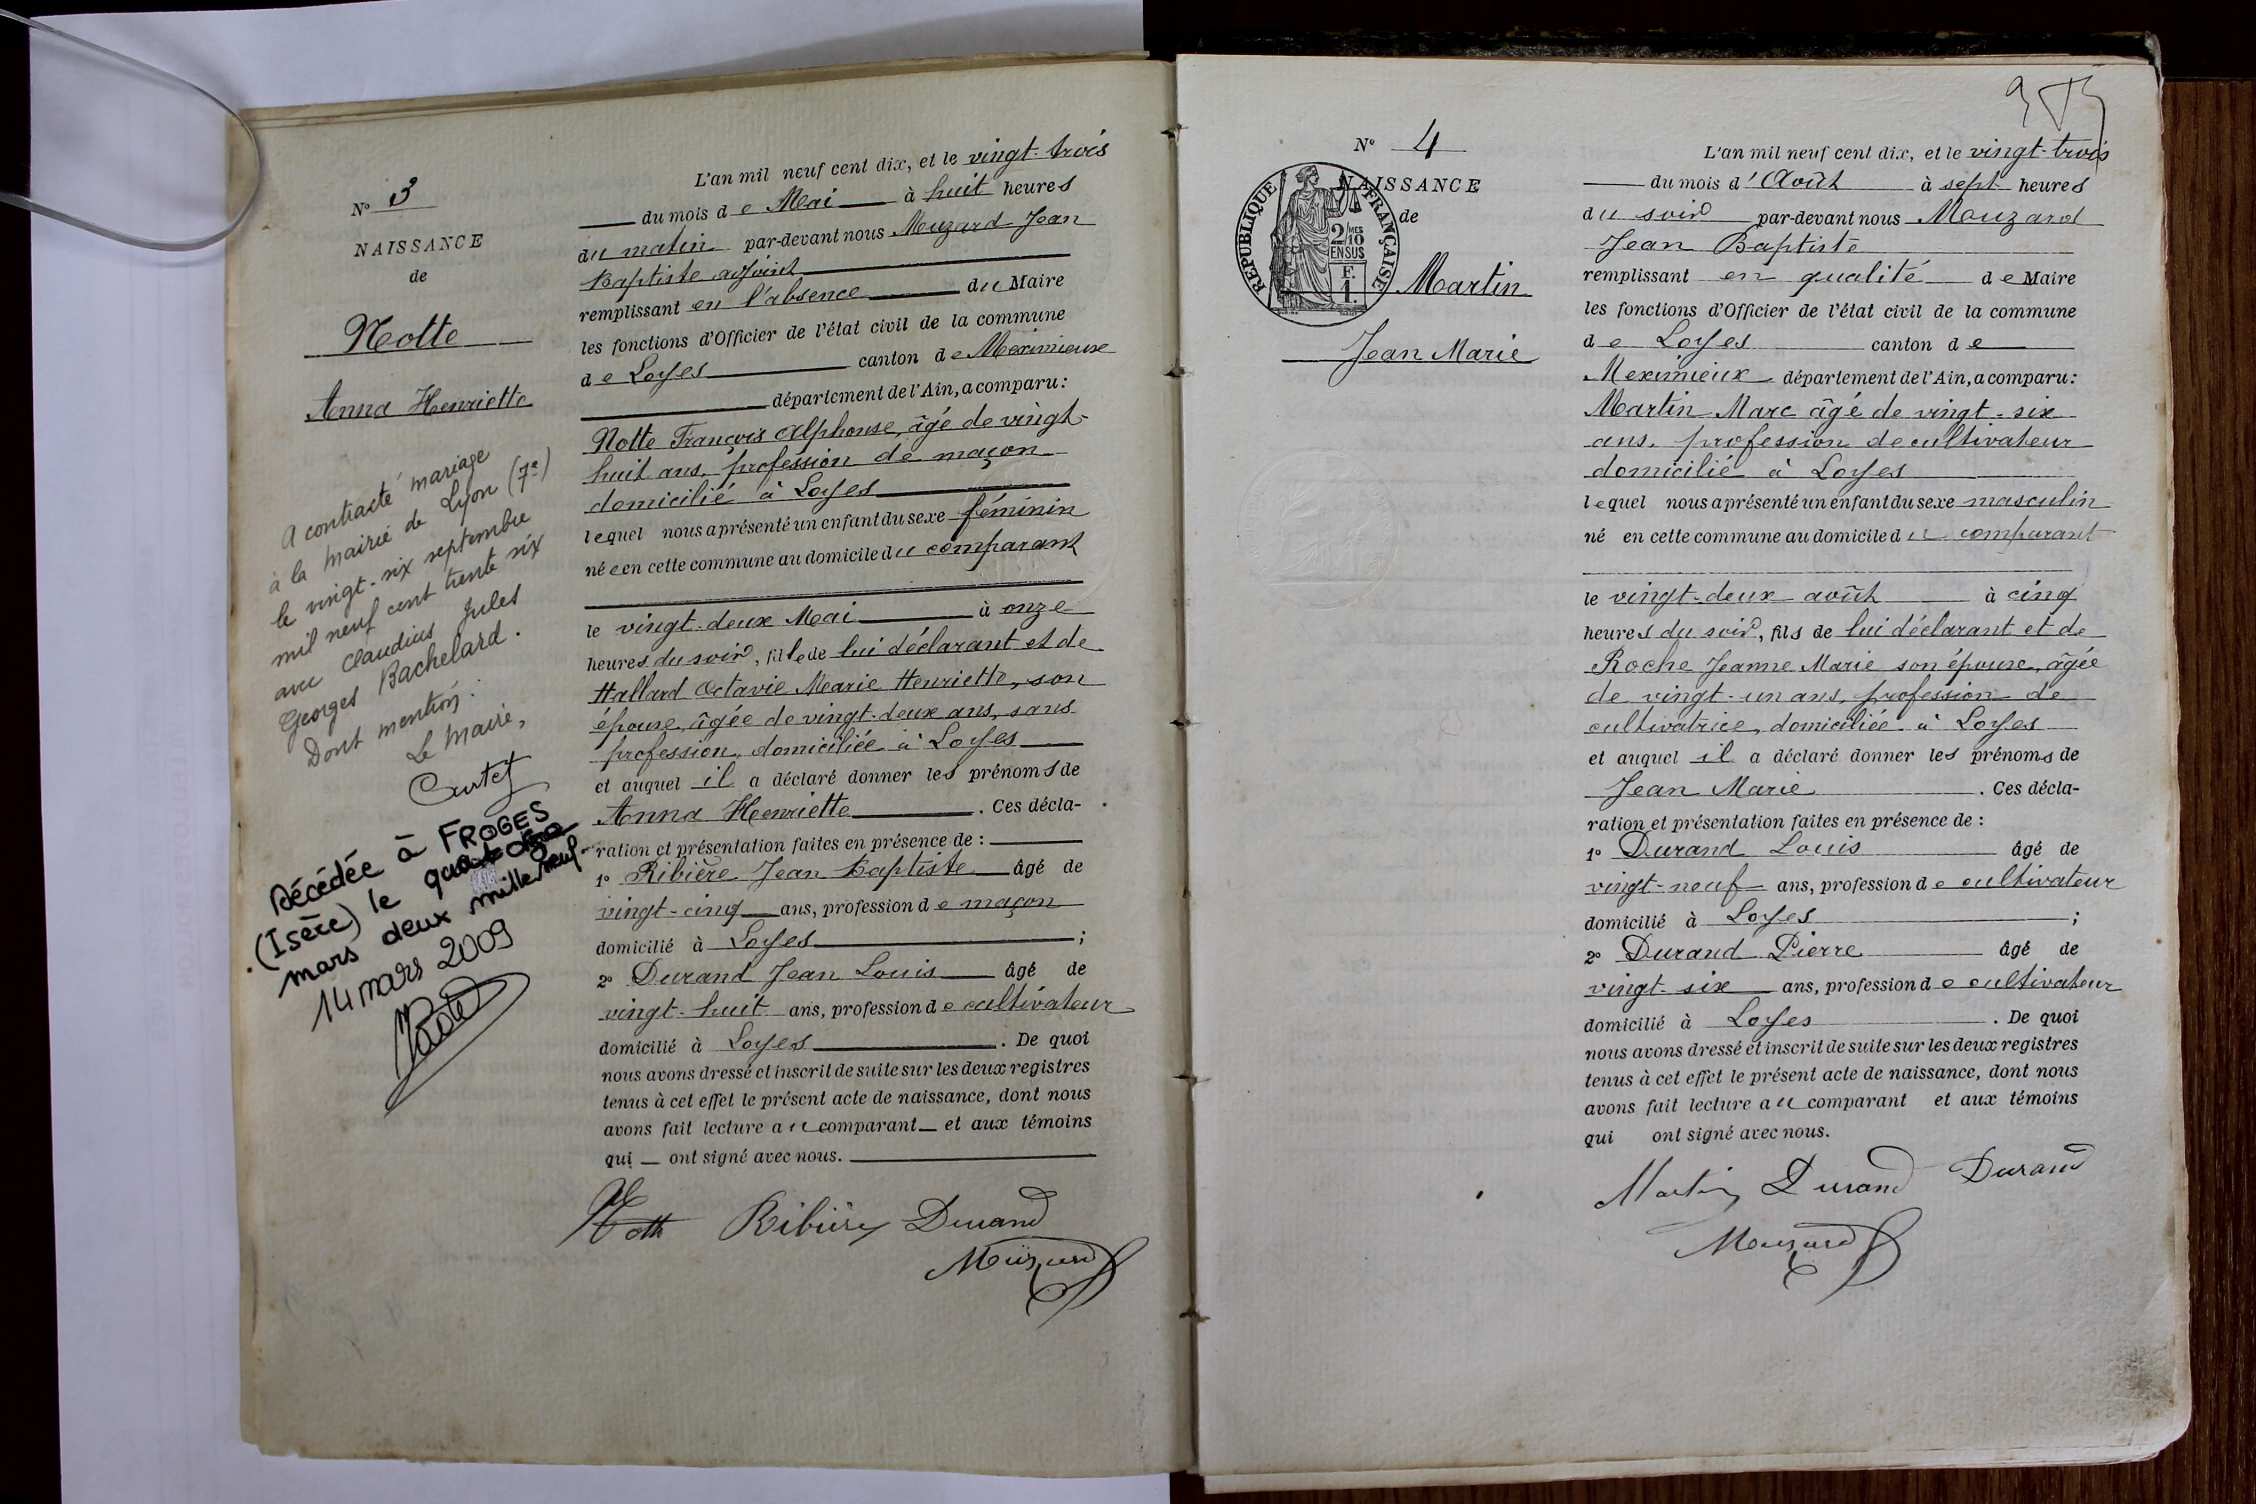 N° 3
NAISSANCE
de
Notte
Anna Henriette
A contracté mariage
à la mairie de Lyon (7e)
le vingt-six septembre
mil neuf cent trente six
avec Claudius Jules
Georges Bachelard.
Dont mention.
Le Maire,
Décédée à FROGES
(Isère) le
mars deux mille neuf
14 mars 2009
L'an mil neuf cent dix, et le vingt-trois
du mois de Mai à huit heures
du matin par-devant nous Mouzard Jean
Baptiste adjoint
remplissant en l'absence du Maire
les fonctions d'Officier de l'état civil de la commune
de Loyes canton de Meximieux
département de l'Ain, a comparu:
Notte François Alphonse, âgé de vingt-
huit ans, profession de maçon
domicilié à Loyes
lequel nous a présenté un enfant du sexe féminin
née en cette commune au domicile du comparant
le vingt-deux Mai à onze
heures du soir, fille de lui déclarant et de
Hallard Octavie Marie Henriette, son
épouse, âgée de vingt-deux ans, sans
profession, domiciliée à Loyes
et auquel il a déclaré donner les prénoms de
Anna Henriette. Ces décla-
ration et présentation faites en présence de :
1° Ribière Jean Baptiste âgé de
vingt-cinq ans, profession de maçon
domicilié à Loyes ;
2° Durand Jean Louis âgé de
vingt-huit ans, profession de cultivateur
domicilié à Loyes. De quoi
nous avons dressé et inscrit de suite sur les deux registres
tenus à cet effet le présent acte de naissance, dont nous
avons fait lecture au comparant et aux témoins
qui ont signé avec nous.
Notte Ribière Durand
Mouzard
N° 4
NAISSANCE
de
RÉPUBLIQUE FRANÇAISE
2/10 MES
EN SUS
F.
1.
Martin
Jean Marie
L'an mil neuf cent dix, et le vingt-trois
du mois d'Août à sept heures
du soir par-devant nous Mouzard
Jean Baptiste
remplissant en qualité de Maire
les fonctions d'Officier de l'état civil de la commune
de Loyes canton de
Meximieux département de l'Ain, a comparu:
Martin Marc âgé de vingt-six
ans, profession de cultivateur
domicilié à Loyes
lequel nous a présenté un enfant du sexe masculin
né en cette commune au domicile du comparant
le vingt-deux août à cinq
heures du soir, fils de lui déclarant et de
Roche Jeanne Marie son épouse, âgée
de vingt-un ans, profession de
cultivatrice, domiciliée à Loyes
et auquel il a déclaré donner les prénoms de
Jean Marie. Ces décla-
ration et présentation faites en présence de :
1° Durand Louis âgé de
vingt-neuf ans, profession de cultivateur
domicilié à Loyes ;
2° Durand Pierre âgé de
vingt-six ans, profession de cultivateur
domicilié à Loyes. De quoi
nous avons dressé et inscrit de suite sur les deux registres
tenus à cet effet le présent acte de naissance, dont nous
avons fait lecture au comparant et aux témoins
qui ont signé avec nous.
Martin Durand Durand
Mouzard